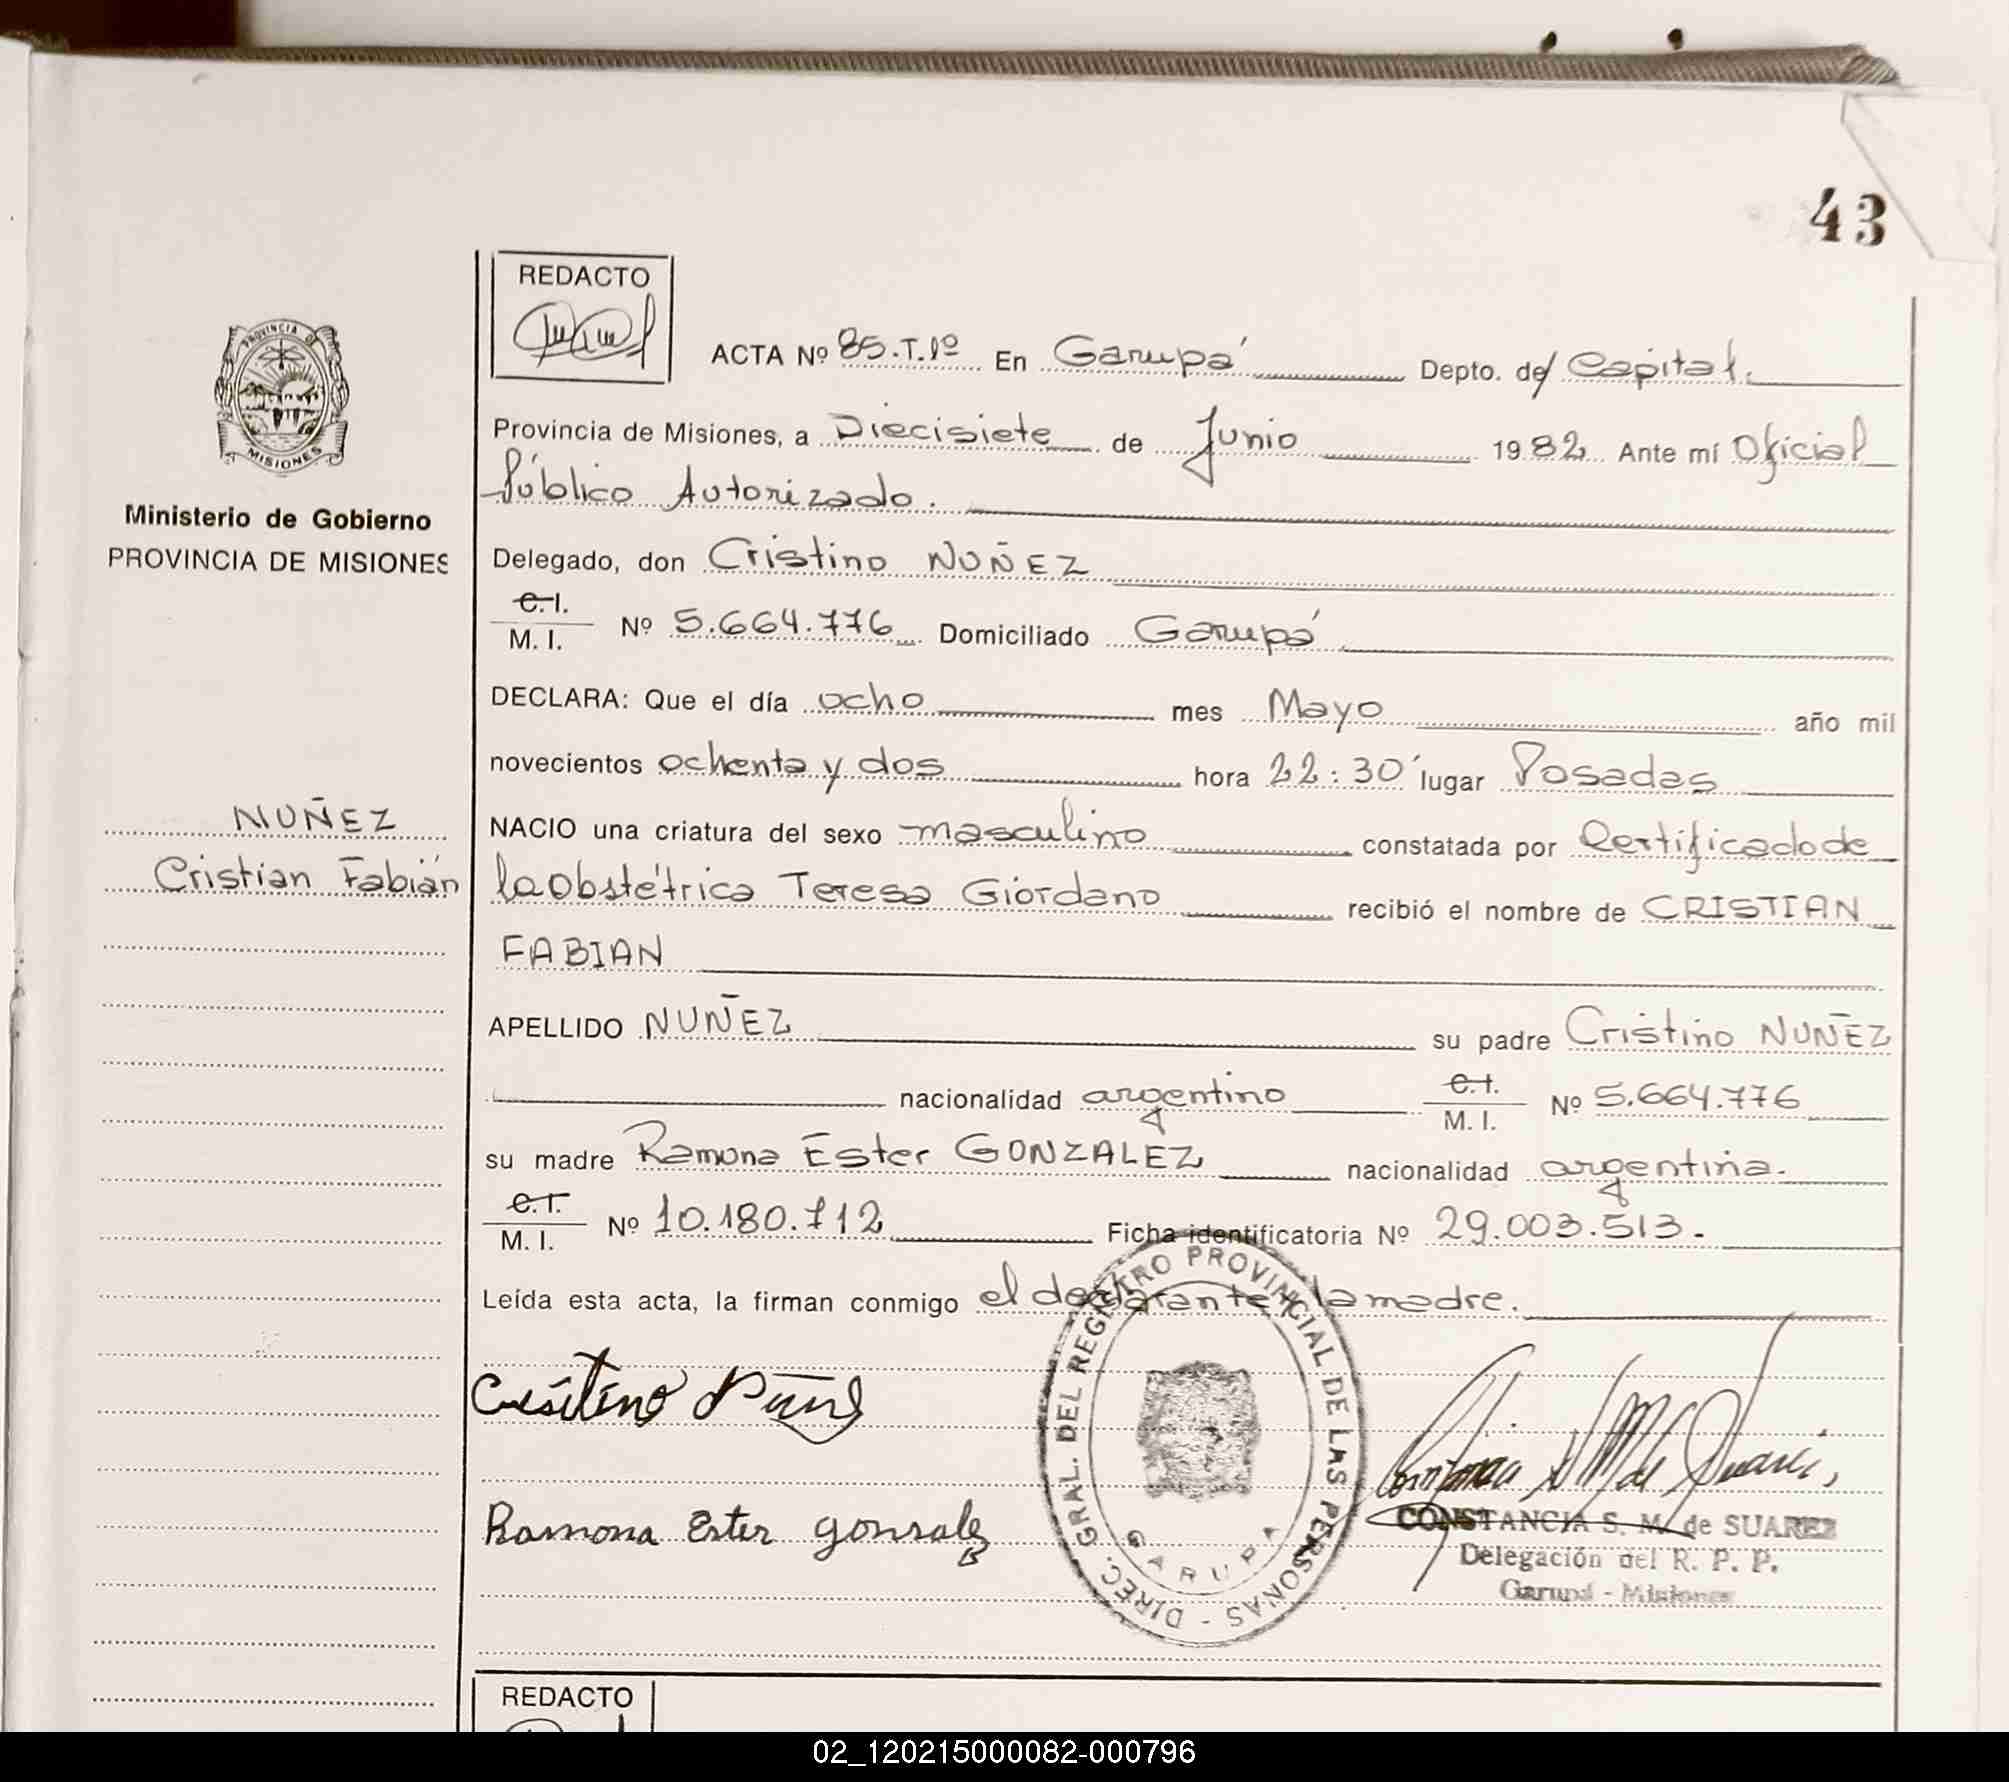 43
REDACTO
ACTA Nº 85.T.1º En Garupá Depto. de Capital.
PROVINCIA DE
MISIONES
Provincia de Misiones, a Diecisiete de Junio 1982 Ante mí Oficial
Público Autorizado.
Ministerio de Gobierno
PROVINCIA DE MISIONES
Delegado, don Cristino NUÑEZ
C.I.
M. I. Nº 5.664.776 Domiciliado Garupá
DECLARA: Que el día ocho mes Mayo año mil
novecientos ochenta y dos hora 22:30' lugar Posadas
NUÑEZ
Cristian Fabián
NACIO una criatura del sexo masculino constatada por Certificado de
la Obstétrica Teresa Giordano recibió el nombre de CRISTIAN
FABIAN
APELLIDO NUÑEZ su padre Cristino NUÑEZ
nacionalidad argentino C.I. M. I. Nº 5.664.776
su madre Ramona Ester GONZALEZ nacionalidad argentina.
C.I.
M. I. Nº 10.180.712 Ficha identificatoria Nº 29.003.513.
Leída esta acta, la firman conmigo el declarante y la madre.
DIREC. GRAL. DEL REGISTRO PROVINCIAL DE LAS PERSONAS -
GARUPA
Cristino Nuñez
Ramona Ester gonsalez
CONSTANCIA S. M. de SUAREZ
Delegación del R. P. P.
Garupá - Misiones
REDACTO
02_120215000082-000796